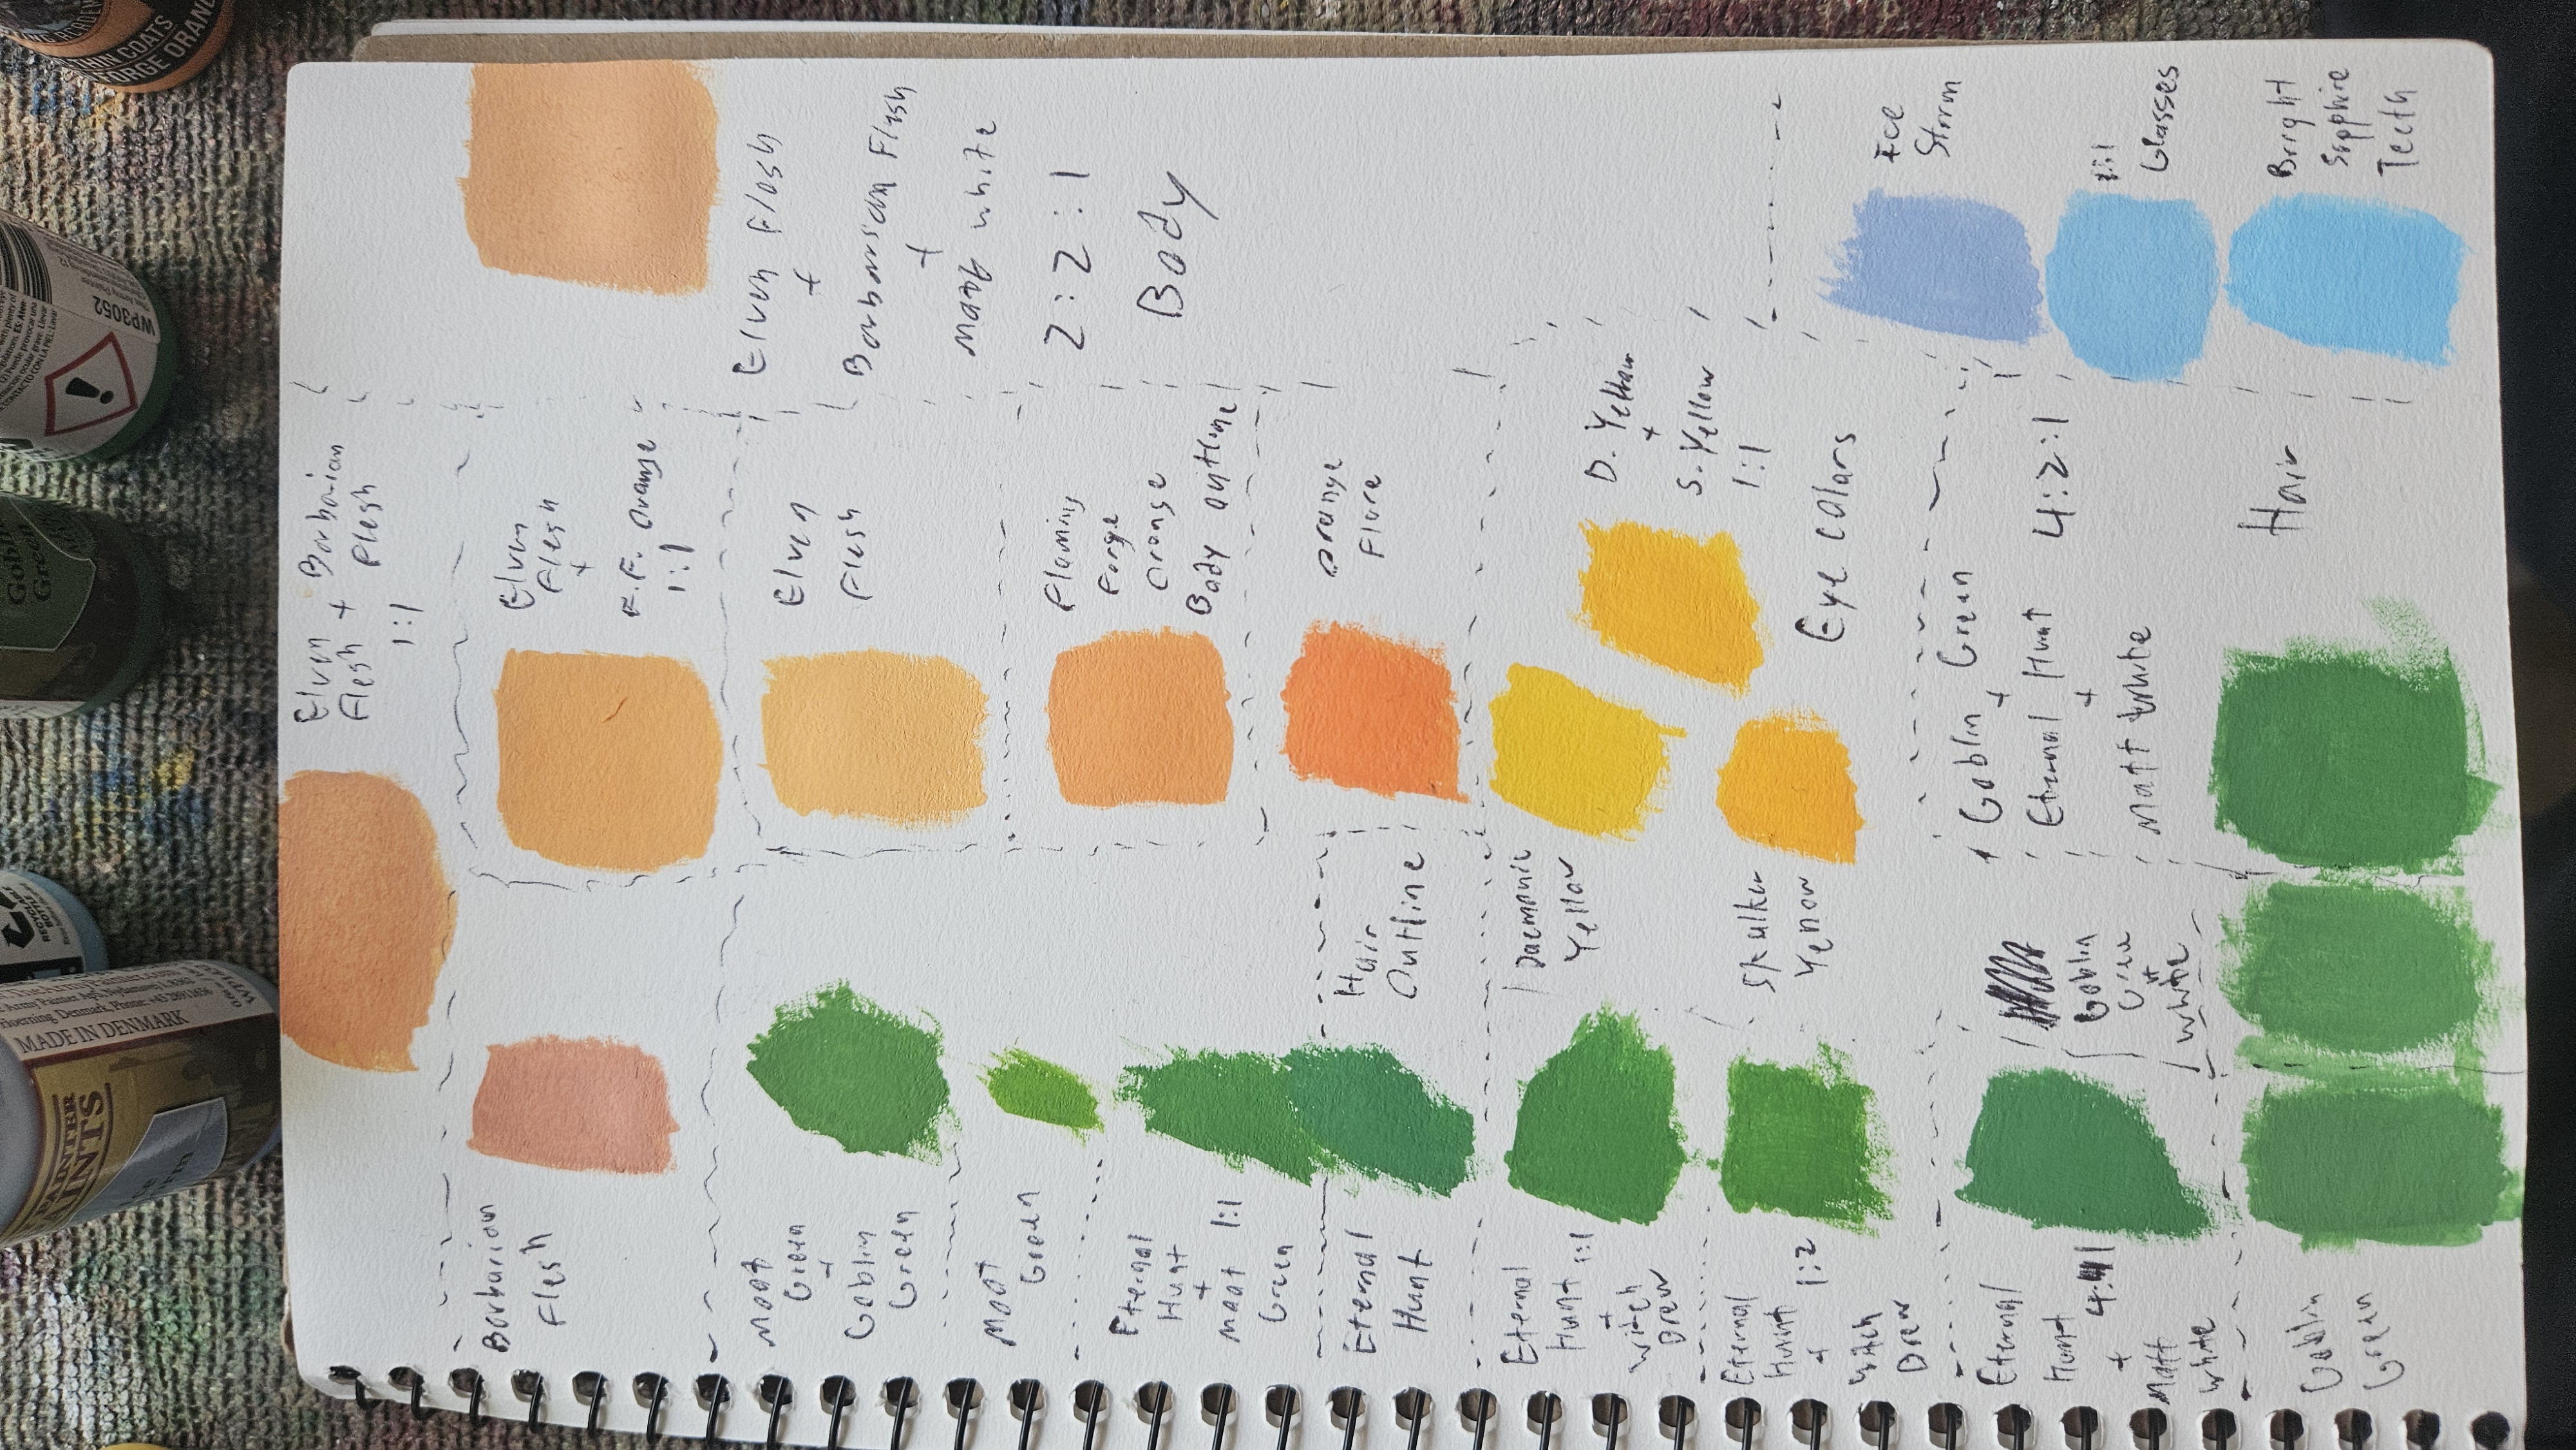 THIN COATS
FORGE ORANG
WP3052
Goblin
Green
MADE IN DENMARK
PAINTS
Elven + Barbarian
Flesh Flesh
1:1
Barbarian
Flesh
Elven
Flesh
+
F.F. Orange
1:1
Elven Flesh
+
Barbarian Flesh
+
Matt white
2:2:1
Body
Elven
Flesh
Moot
Green
+
Goblin
Green
Moot
Green
Flaming
Forge
Orange
Body outline
Eternal
Hunt
+
Moot 1:1
Green
Orange
Flare
Hair
Outline
Eternal
Hunt
D. Yellow
+
S. Yellow
1:1
Eye colars
Daemonic
Yellow
Skulker
Yellow
Eternal
Hunt 1:1
+
Witch
Brew
Eternal
Hunt 1:2
+
Witch
Brew
Ice
Storm
1:1
Glasses
Bright
Sapphire
Teeth
Goblin Green
+
Eternal Hunt 4:2:1
+
Matt white
Hair
Goblin
Green
+
White
Eternal
Hunt
+
Matt
White
Goblin
Green